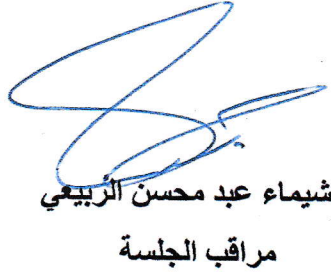 شيماء عبد محسن الزبيعي
مراقب الجلسة